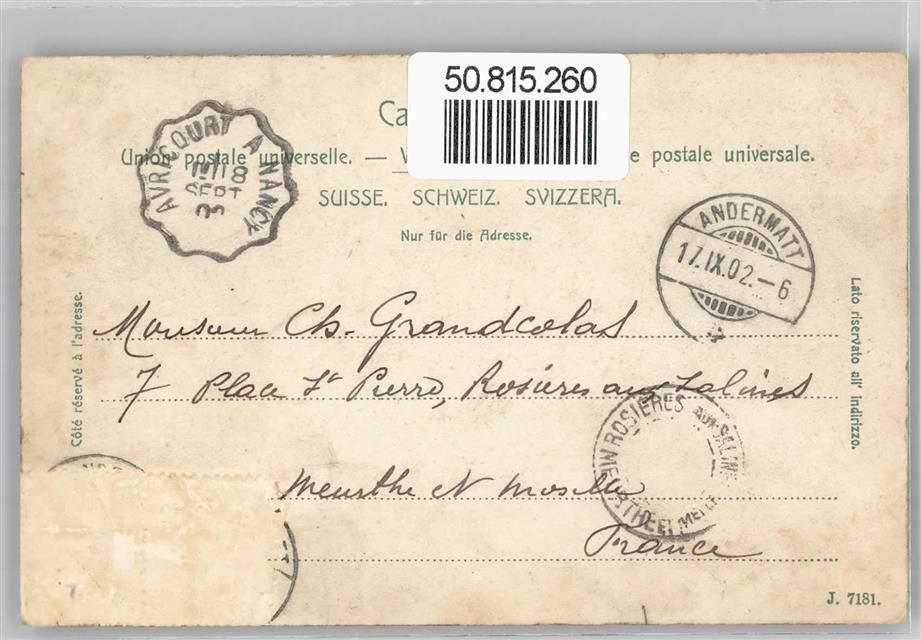 50.815.260
Ca
Union postale universelle. — V e postale universale.
SUISSE. SCHWEIZ. SVIZZERA.
Nur für die Adresse.
AVRICOURT A NANCY
SEPT
ANDERMATT
17.IX.02.–6
Côté réservé à l'adresse.
Lato riservato all' indirizzo.
Monsieur Ch. Grandcolas
7 Place St Pierre, Rosières aux Salines
Meurthe et Moselle
France
ROSIERES AUX SALINE
J. 7181.